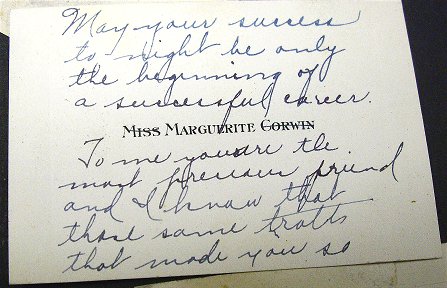 May your success
to night be only
the beginning of
a successful career.
MISS MARGUERITE CORWIN
To me you are the
most precious friend
and I know that
those same traits
that made you so